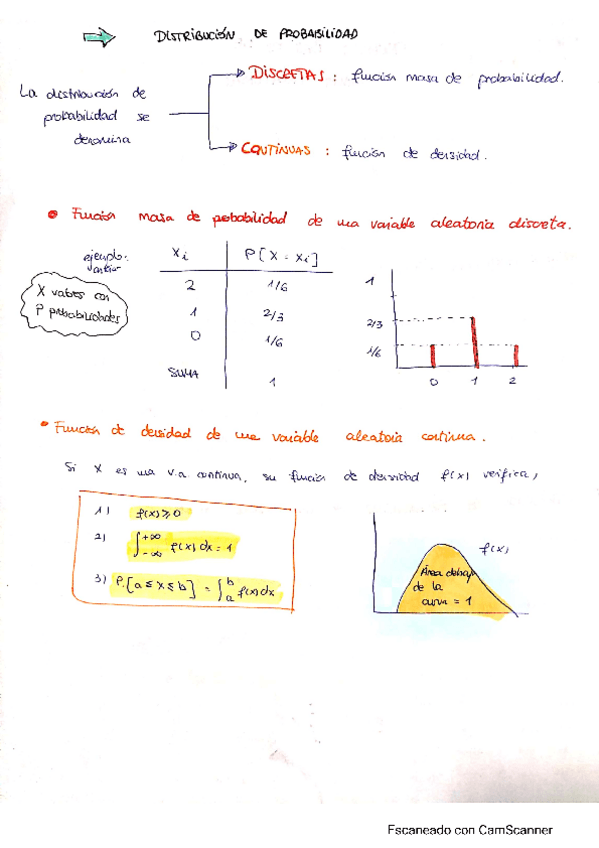 DISTRIBUCIÓN DE PROBABILIDAD
La distribución de
probabilidad se
denomina
DISCRETAS : función masa de probabilidad.
CONTINUAS : función de densidad.
• Función masa de probabilidad de una variable aleatoria discreta.
ejemplo.
X valores con
P probabilidades
Xi P[X = Xi]
2 1/6
1 2/3
0 1/6
SUMA 1
1
2/3
1/6
0 1 2
• Función de densidad de una variable aleatoria continua.
Si X es una v.a continua, su función de densidad f(x) verifica,
1) f(x) ≥ 0
2) ∫-∞+∞ f(x) dx = 1
3) P[a ≤ X ≤ b] = ∫ab f(x) dx
f(x)
Área debajo
de la
curva = 1
Escaneado con CamScanner